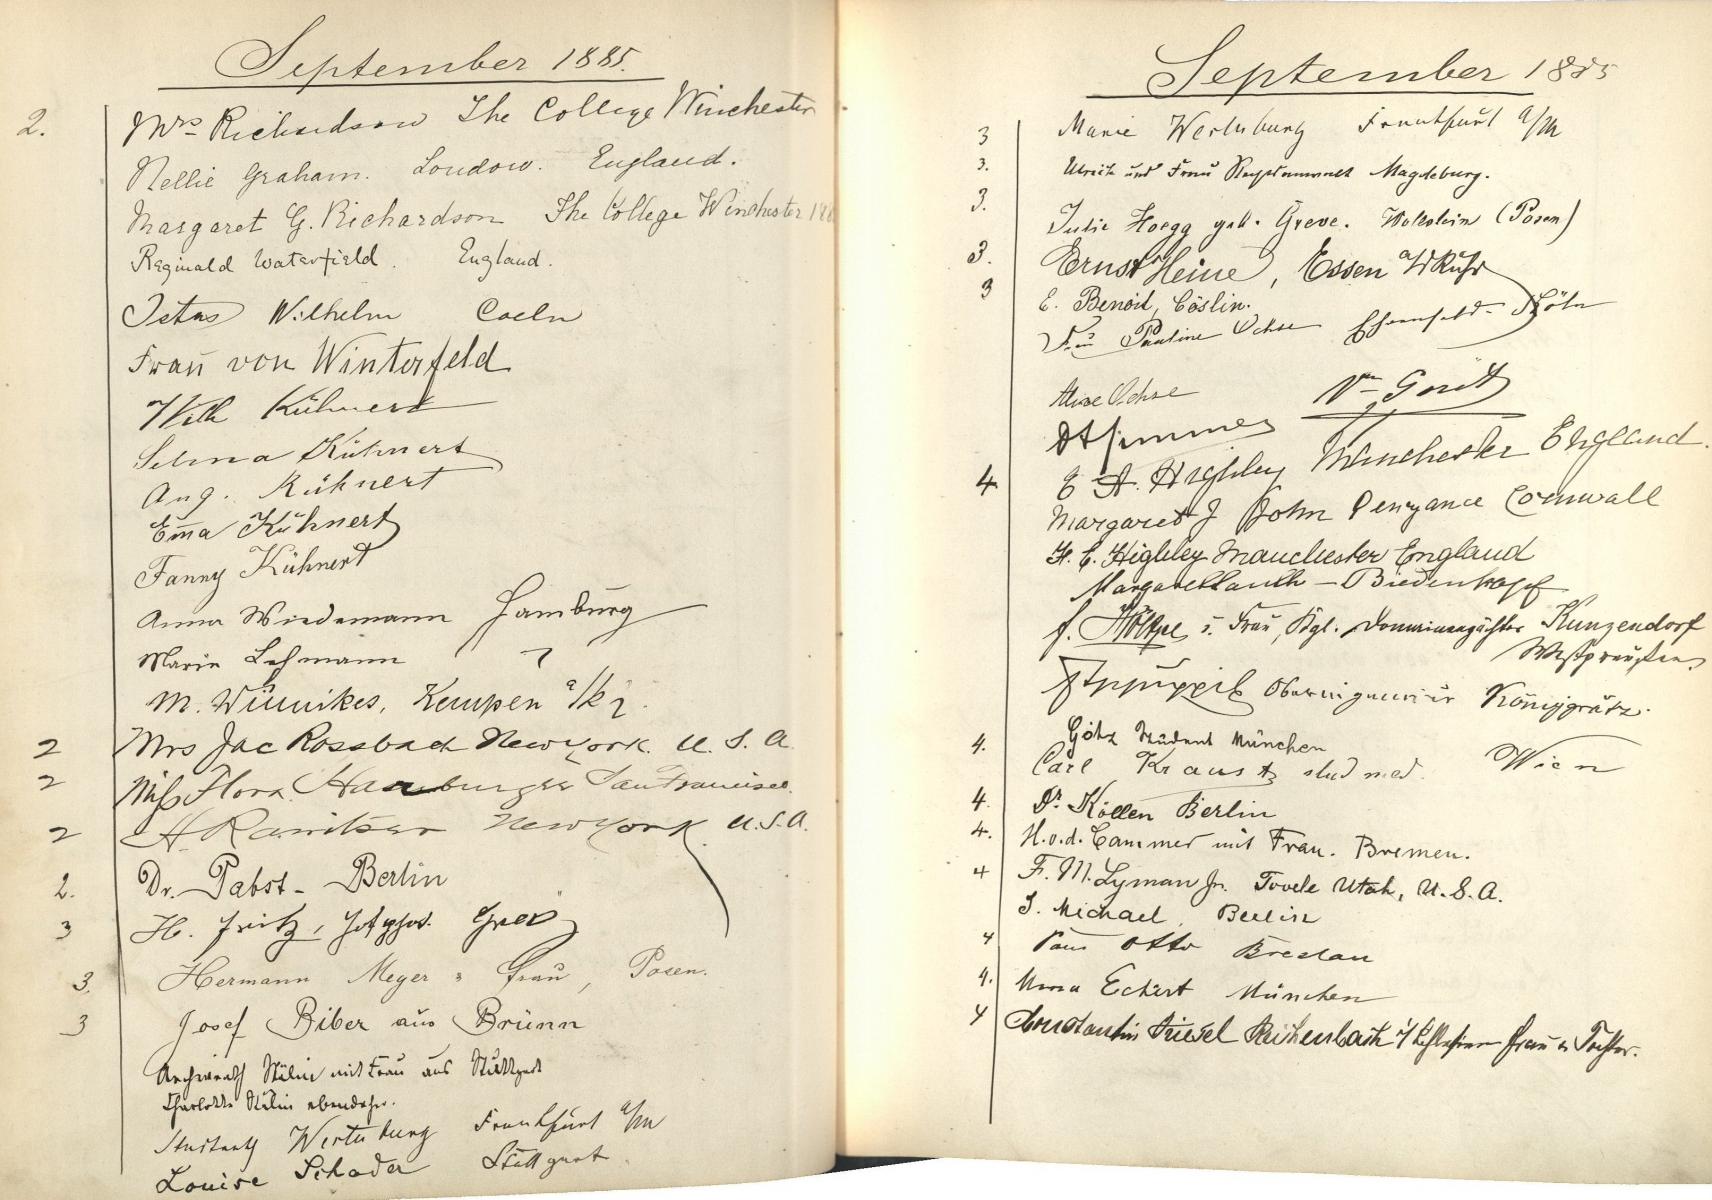 September 1885.
2. Mrs Richardson The College Winchester
Nellie Graham. London. England.
Margaret G. Richardson The College Winchester 188
Reginald Waterfield. England.
Wilhelm Coeln
Frau von Winterfeld
Wilh Kühnert
Selma Kühnert
Aug. Kühnert
Emma Kühnert
Fanny Kühnert
Anna Wiedemann Hamburg
Marie Lehmann "
M. Winnikes, Kempen a/
2 Mrs Jac Rossbach New York. U. S. A.
2 Miss Flora Hamburger San Francisco.
2 New York U.S.A.
2. Dr. Pabst - Berlin
3 H. Fritz,
3. Hermann Meyer u Frau, Posen.
3 Josef Biber aus Brünn
Archivrath Stälin mit Frau aus Stuttgart
Charlotte Stälin ebendaher.
Wertheburg Frankfurt a/m
Louise Schader Stuttgart
September 1885
3 Marie Frankfurt a/M
3. Ulrich und Frau Magdeburg.
3. Julie Hoegg geb. Greve. Wollstein (Posen)
3. Ernst Heine, Essen a/d Ruhr
3 E. Benoit, Cöslin.
Frau Pauline Ochse Ehrenfeld - Köln
Ochse
4. E A. Highley Winchester England.
Margaret J John Penzance Cornwall
H. E. Highley Manchester England
Biedenkopf
F. Höltzel u. Frau, Kgl. Domainenpächter Kunzendorf
Westpreußen.
Oberingenieur Königgrätz.
4. Götz Student München
Carl Kraus stud med. Wien
4. Dr. Köllen Berlin
4. H. v. d. Cammer mit Frau. Bremen.
4 F. M. Lyman Jr. Tooele Utah, U. S. A.
S. Michael, Berlin
4 Otto Breslau
4. Anna Eckert München
4 Constantin Reichenbach i/Schlesien Frau u Tochter.